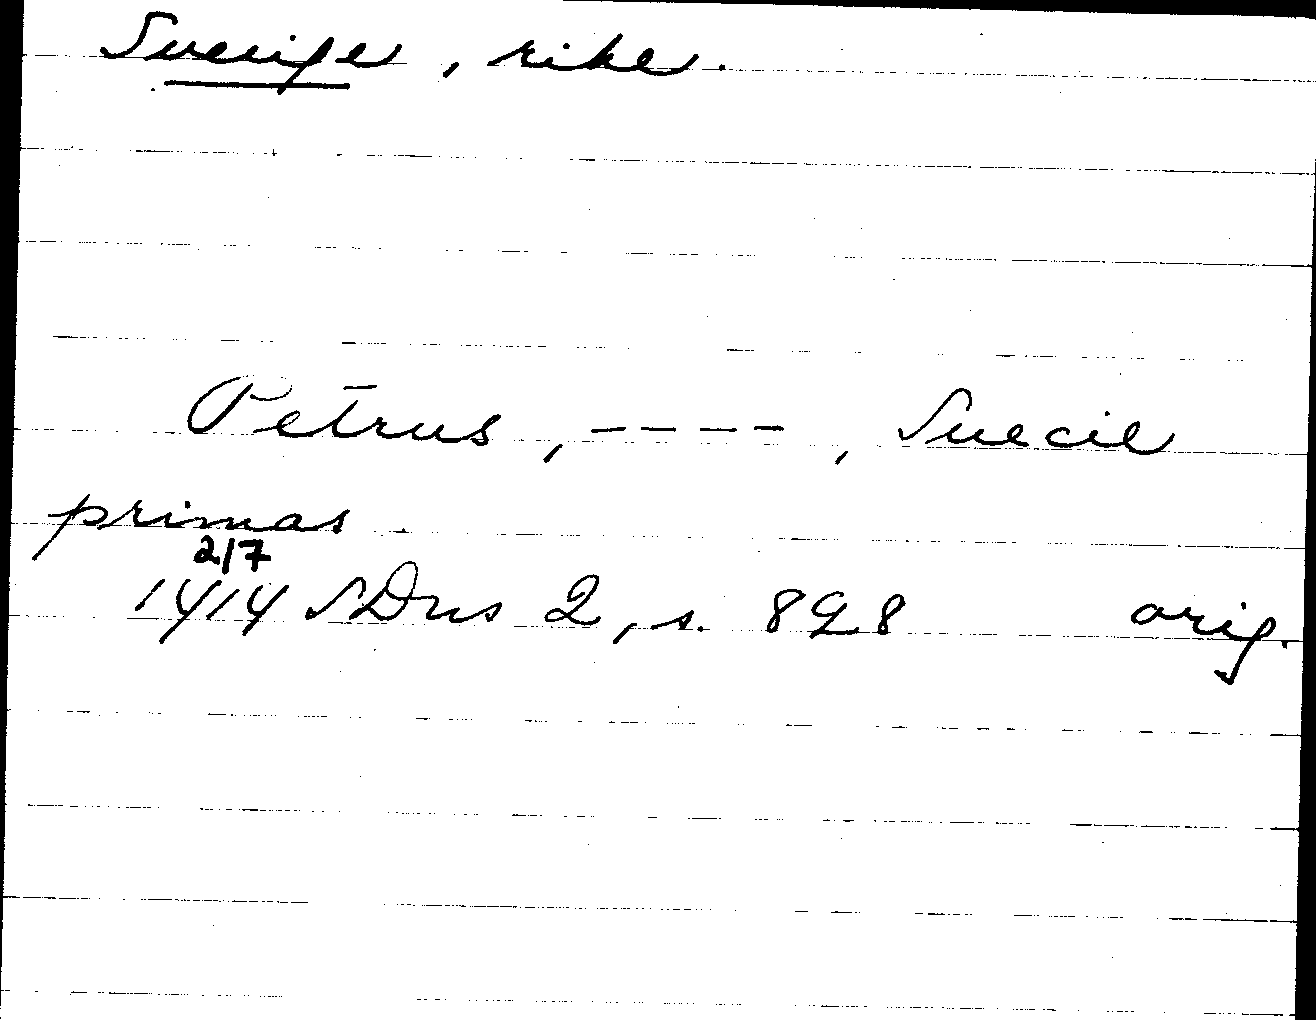 Sverige, rike.
Petrus, ----, Suecie
primas
2/7
1414 SDns 2, s. 828 orig.